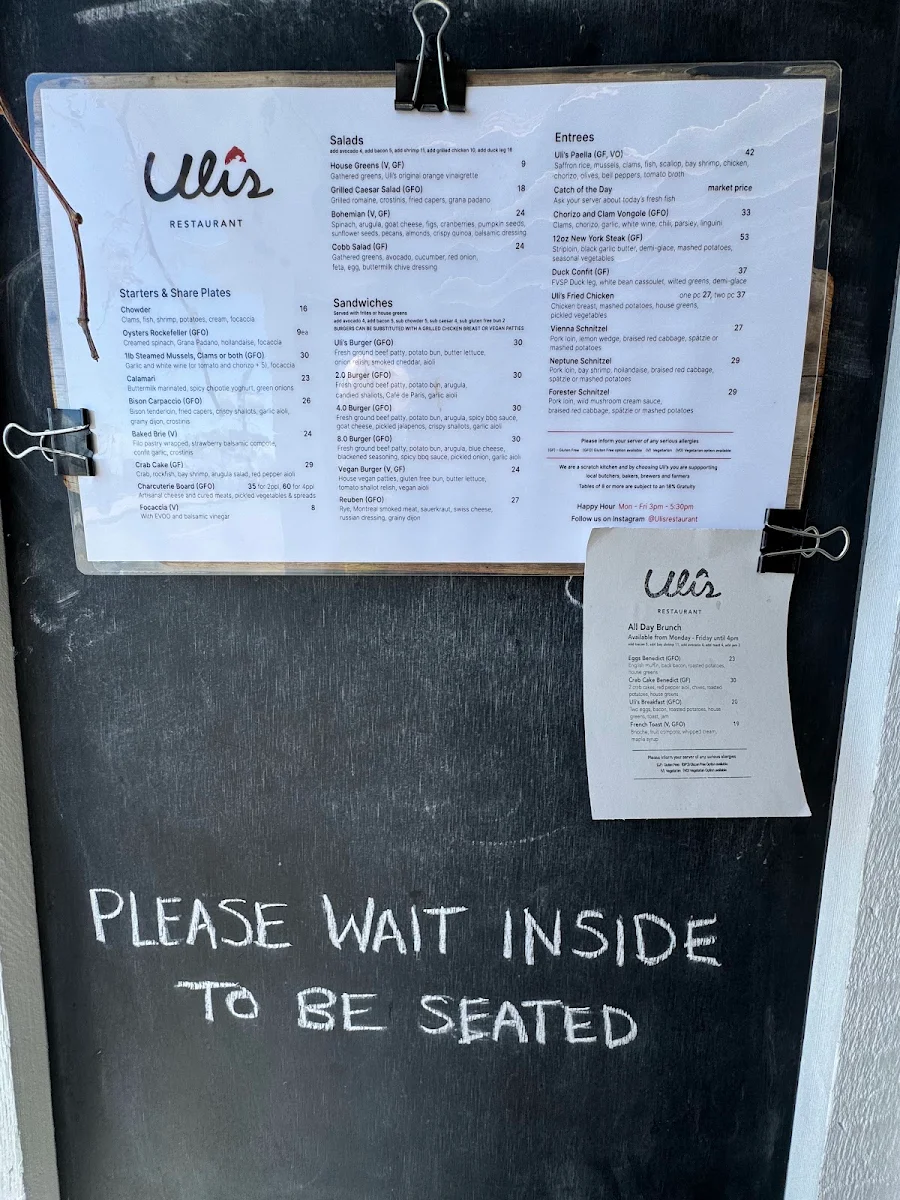 Ulîs
RESTAURANT
Starters & Share Plates
Chowder 16
Clams, fish, shrimp, potatoes, cream, focaccia
Oysters Rockefeller (GFO) 9ea
Creamed spinach, Grana Padano, hollandaise, focaccia
1lb Steamed Mussels, Clams or both (GFO) 30
Garlic and white wine (or tomato and chorizo + 5), focaccia
Calamari 23
Buttermilk marinated, spicy chipotle yoghurt, green onions
Bison Carpaccio (GFO) 26
Bison tenderloin, fried capers, crispy shallots, garlic aioli,
grainy dijon, crostinis
Baked Brie (V) 24
Filo pastry wrapped, strawberry balsamic compote,
confit garlic, crostinis
Crab Cake (GF) 29
Crab, rockfish, bay shrimp, arugula salad, red pepper aioli
Charcuterie Board (GFO) 35 for 2ppl, 60 for 4ppl
Artisanal cheese and cured meats, pickled vegetables & spreads
Focaccia (V) 8
With EVOO and balsamic vinegar
Salads
add avocado 4, add bacon 5, add shrimp 11, add grilled chicken 10, add duck leg 16
House Greens (V, GF) 9
Gathered greens, Uli's original orange vinaigrette
Grilled Caesar Salad (GFO) 18
Grilled romaine, crostinis, fried capers, grana padano
Bohemian (V, GF) 24
Spinach, arugula, goat cheese, figs, cranberries, pumpkin seeds,
sunflower seeds, pecans, almonds, crispy quinoa, balsamic dressing
Cobb Salad (GF) 24
Gathered greens, avocado, cucumber, red onion,
feta, egg, buttermilk chive dressing
Sandwiches
Served with frites or house greens
add avocado 4, add bacon 5, sub chowder 5, sub caesar 4, sub gluten free bun 2
BURGERS CAN BE SUBSTITUTED WITH A GRILLED CHICKEN BREAST OR VEGAN PATTIES
Uli's Burger (GFO) 30
Fresh ground beef patty, potato bun, butter lettuce,
onion relish, smoked cheddar, aioli
2.0 Burger (GFO) 30
Fresh ground beef patty, potato bun, arugula,
candied shallots, Café de Paris, garlic aioli
4.0 Burger (GFO) 30
Fresh ground beef patty, potato bun, arugula, spicy bbq sauce,
goat cheese, pickled jalapenos, crispy shallots, garlic aioli
8.0 Burger (GFO) 30
Fresh ground beef patty, potato bun, arugula, blue cheese,
blackened seasoning, spicy bbq sauce, pickled onion, garlic aioli
Vegan Burger (V, GF) 24
House vegan patties, gluten free bun, butter lettuce,
tomato shallot relish, vegan aioli
Reuben (GFO) 27
Rye, Montreal smoked meat, sauerkraut, swiss cheese,
russian dressing, grainy dijon
Entrees
Uli's Paella (GF, VO) 42
Saffron rice, mussels, clams, fish, scallop, bay shrimp, chicken,
chorizo, olives, bell peppers, tomato broth
Catch of the Day market price
Ask your server about today's fresh fish
Chorizo and Clam Vongole (GFO) 33
Clams, chorizo, garlic, white wine, chili, parsley, linguini
12oz New York Steak (GF) 53
Striploin, black garlic butter, demi-glace, mashed potatoes,
seasonal vegetables
Duck Confit (GF) 37
FVSP Duck leg, white bean cassoulet, wilted greens, demi-glace
Uli's Fried Chicken one pc 27, two pc 37
Chicken breast, mashed potatoes, house greens,
pickled vegetables
Vienna Schnitzel 27
Pork loin, lemon wedge, braised red cabbage, spätzle or
mashed potatoes
Neptune Schnitzel 29
Pork loin, bay shrimp, hollandaise, braised red cabbage,
spätzle or mashed potatoes
Forester Schnitzel 29
Pork loin, wild mushroom cream sauce,
braised red cabbage, spätzle or mashed potatoes
Please inform your server of any serious allergies
(GF) - Gluten Free (GFO) Gluten Free option available (V) Vegetarian (VO) Vegetarian option available
We are a scratch kitchen and by choosing Uli's you are supporting
local butchers, bakers, brewers and farmers
Tables of 8 or more are subject to an 18% Gratuity
Happy Hour Mon - Fri 3pm - 5:30pm
Follow us on Instagram @Ulisrestaurant
Ulîs
RESTAURANT
All Day Brunch
Available from Monday - Friday until 4pm
Eggs Benedict (GFO) 23
English muffin, back bacon, roasted potatoes,
house greens
Crab Cake Benedict (GF) 30
2 crab cakes, red pepper aioli, chives, roasted
potatoes, house greens
Uli's Breakfast (GFO) 20
Two eggs, bacon, roasted potatoes, house
greens, toast, jam
French Toast (V, GFO) 19
Brioche, fruit compote, whipped cream,
maple syrup
Please inform your server of any serious allergies
(GF) Gluten Free (GFO) Gluten Free Option available
(V) Vegetarian (VO) Vegetarian Option available
PLEASE WAIT INSIDE
TO BE SEATED